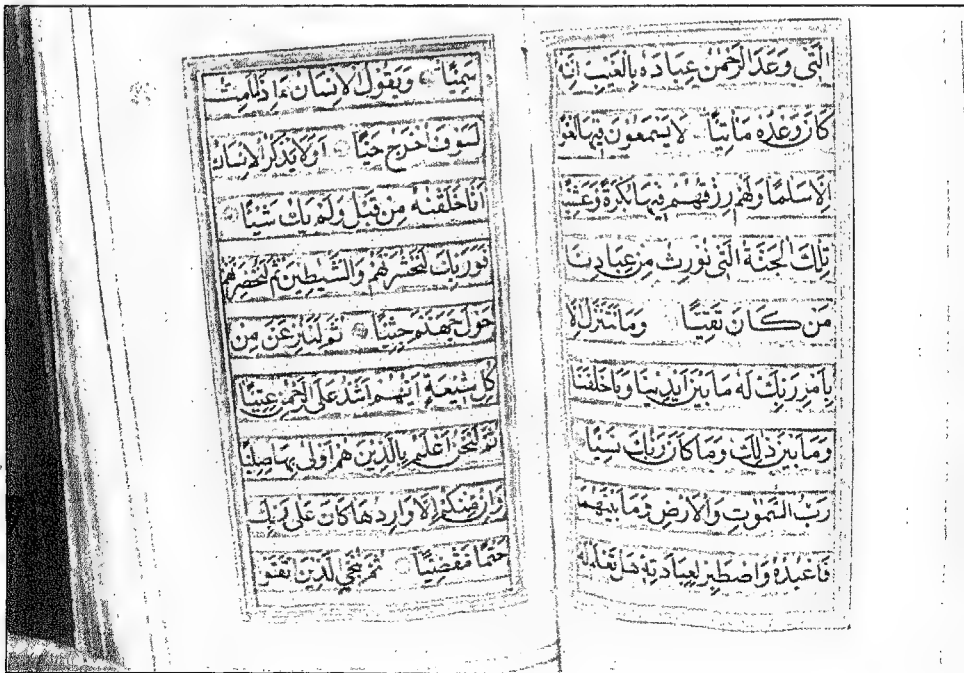 الَّتِى وَعَدَ الرَّحْمٰنُ عِبَادَهُ بِالْغَيْبِ اِنَّهُ
كَانَ وَعْدُهُ مَاْتِيًّا لَا يَسْمَعُوْنَ فِيْهَا لَغْوًا
اِلَّا سَلٰمًا وَلَهُمْ رِزْقُهُمْ فِيْهَا بُكْرَةً وَعَشِيًّا
تِلْكَ الْجَنَّةُ الَّتِى نُوْرِثُ مِنْ عِبَادِنَا
مَنْ كَانَ تَقِيًّا وَمَا نَتَنَزَّلُ اِلَّا
بِاَمْرِ رَبِّكَ لَهُ مَا بَيْنَ اَيْدِيْنَا وَمَا خَلْفَنَا
وَمَا بَيْنَ ذٰلِكَ وَمَا كَانَ رَبُّكَ نَسِيًّا
رَبُّ السَّمٰوٰتِ وَالْاَرْضِ وَمَا بَيْنَهُمَا
فَاعْبُدْهُ وَاصْطَبِرْ لِعِبَادَتِهِ هَلْ تَعْلَمُ لَهُ
سَمِيًّا وَيَقُوْلُ الْاِنْسَانُ ءَاِذَا مَامِتُّ
لَسَوْفَ اُخْرَجُ حَيًّا اَوَلَا يَذْكُرُ الْاِنْسَانُ
اَنَّا خَلَقْنٰهُ مِنْ قَبْلُ وَلَمْ يَكُ شَيْئًا
فَوَرَبِّكَ لَنَحْشُرَنَّهُمْ وَالشَّيٰطِيْنَ ثُمَّ لَنُحْضِرَنَّهُمْ
حَوْلَ جَهَنَّمَ جِثِيًّا ثُمَّ لَنَنْزِعَنَّ مِنْ
كُلِّ شِيْعَةٍ اَيُّهُمْ اَشَدُّ عَلَى الرَّحْمٰنِ عِتِيًّا
ثُمَّ لَنَحْنُ اَعْلَمُ بِالَّذِيْنَ هُمْ اَوْلٰى بِهَا صِلِيًّا
وَاِنْ مِنْكُمْ اِلَّا وَارِدُهَا كَانَ عَلٰى رَبِّكَ
حَتْمًا مَقْضِيًّا ثُمَّ نُنَجِّى الَّذِيْنَ اتَّقَوْا